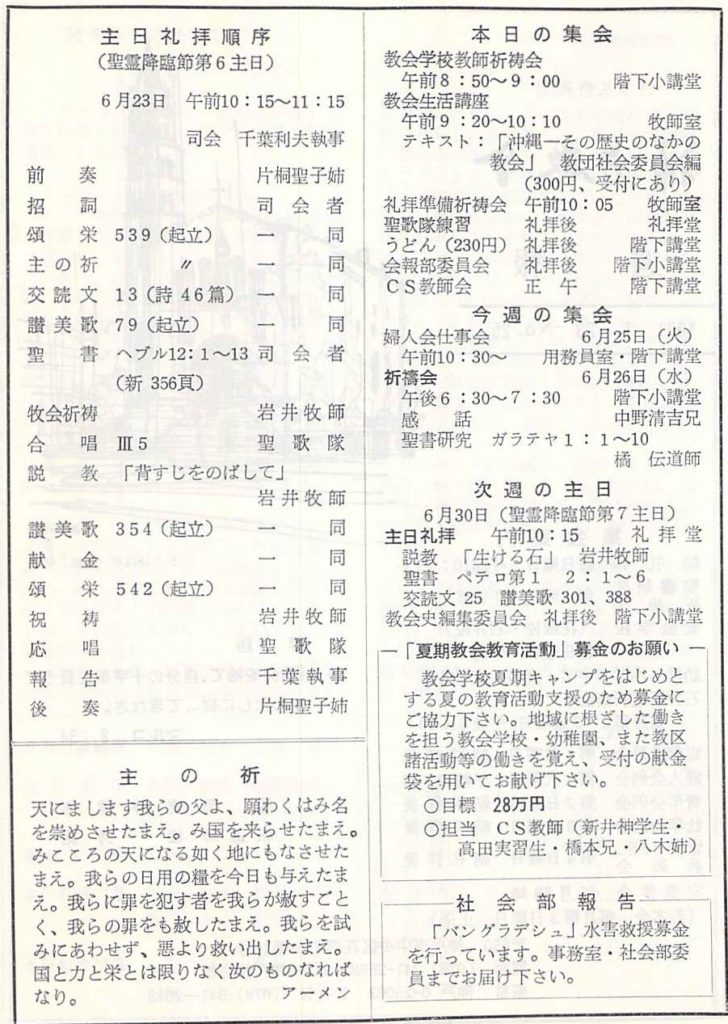 主日礼拝順序
(聖霊降臨節第6主日)
6月23日 午前10:15〜11:15
司会 千葉利夫執事
前奏 片桐聖子姉
招詞 司会者
頌栄 539(起立) 一同
主の祈 〃 一同
交読文 13(詩46篇) 一同
讃美歌 79(起立) 一同
聖書 ヘブル12:1〜13 司会者
(新 356頁)
牧会祈祷 岩井牧師
合唱 Ⅲ5 聖歌隊
説教 「背すじをのばして」
岩井牧師
讃美歌 354(起立) 一同
献金 一同
頌栄 542(起立) 一同
祝祷 岩井牧師
応唱 聖歌隊
報告 千葉執事
後奏 片桐聖子姉
主の祈
天にまします我らの父よ、願わくはみ名
を崇めさせたまえ。み国を来らせたまえ。
みこころの天になる如く地にもなさせた
まえ。我らの日用の糧を今日も与えたま
え。我らに罪を犯す者を我らが赦すごと
く、我らの罪をも赦したまえ。我らを試
みにあわせず、悪より救い出したまえ。
国と力と栄とは限りなく汝のものなれば
なり。 アーメン
本日の集会
教会学校教師祈祷会
午前8:50〜9:00 階下小講堂
教会生活講座
午前9:20〜10:10 牧師室
テキスト:「沖縄―その歴史のなかの
教会」 教団社会委員会編
(300円、受付にあり)
礼拝準備祈祷会 午前10:05 牧師室
聖歌隊練習 礼拝後 礼拝堂
うどん(230円) 礼拝後 階下講堂
会報部委員会 礼拝後 階下小講堂
CS教師会 正午 階下講堂
今週の集会
婦人会仕事会 6月25日(火)
午前10:30〜 用務員室・階下講堂
祈禱会 6月26日(水)
午後6:30〜7:30 階下小講堂
感話 中野清吉兄
聖書研究 ガラテヤ1:1〜10
橘 伝道師
次週の主日
6月30日(聖霊降臨節第7主日)
主日礼拝 午前10:15 礼拝堂
説教 「生ける石」 岩井牧師
聖書 ペテロ第1 2:1〜6
交読文 25 讃美歌 301、388
教会史編集委員会 礼拝後 階下小講堂
「夏期教会教育活動」募金のお願い
教会学校夏期キャンプをはじめと
する夏の教育活動支援のため募金に
ご協力下さい。地域に根ざした働き
を担う教会学校・幼稚園、また教区
諸活動等の働きを覚え、受付の献金
袋を用いてお献げ下さい。
○目標 28万円
○担当 CS教師(新井神学生・
高田実習生・橋本兄・八木姉)
社会部報告
「バングラデシュ」水害救援募金
を行っています。事務室・社会部委
員までお届け下さい。